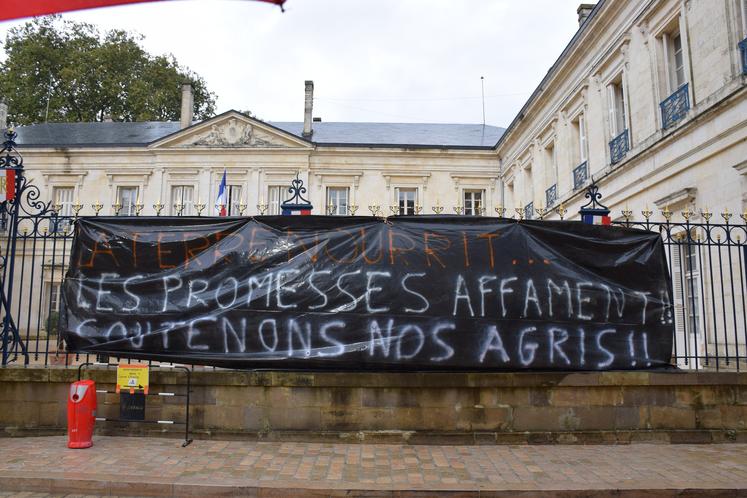 LA TERRE NOURRIT...
LES PROMESSES AFFAMENT!!
SOUTENONS NOS AGRIS!!